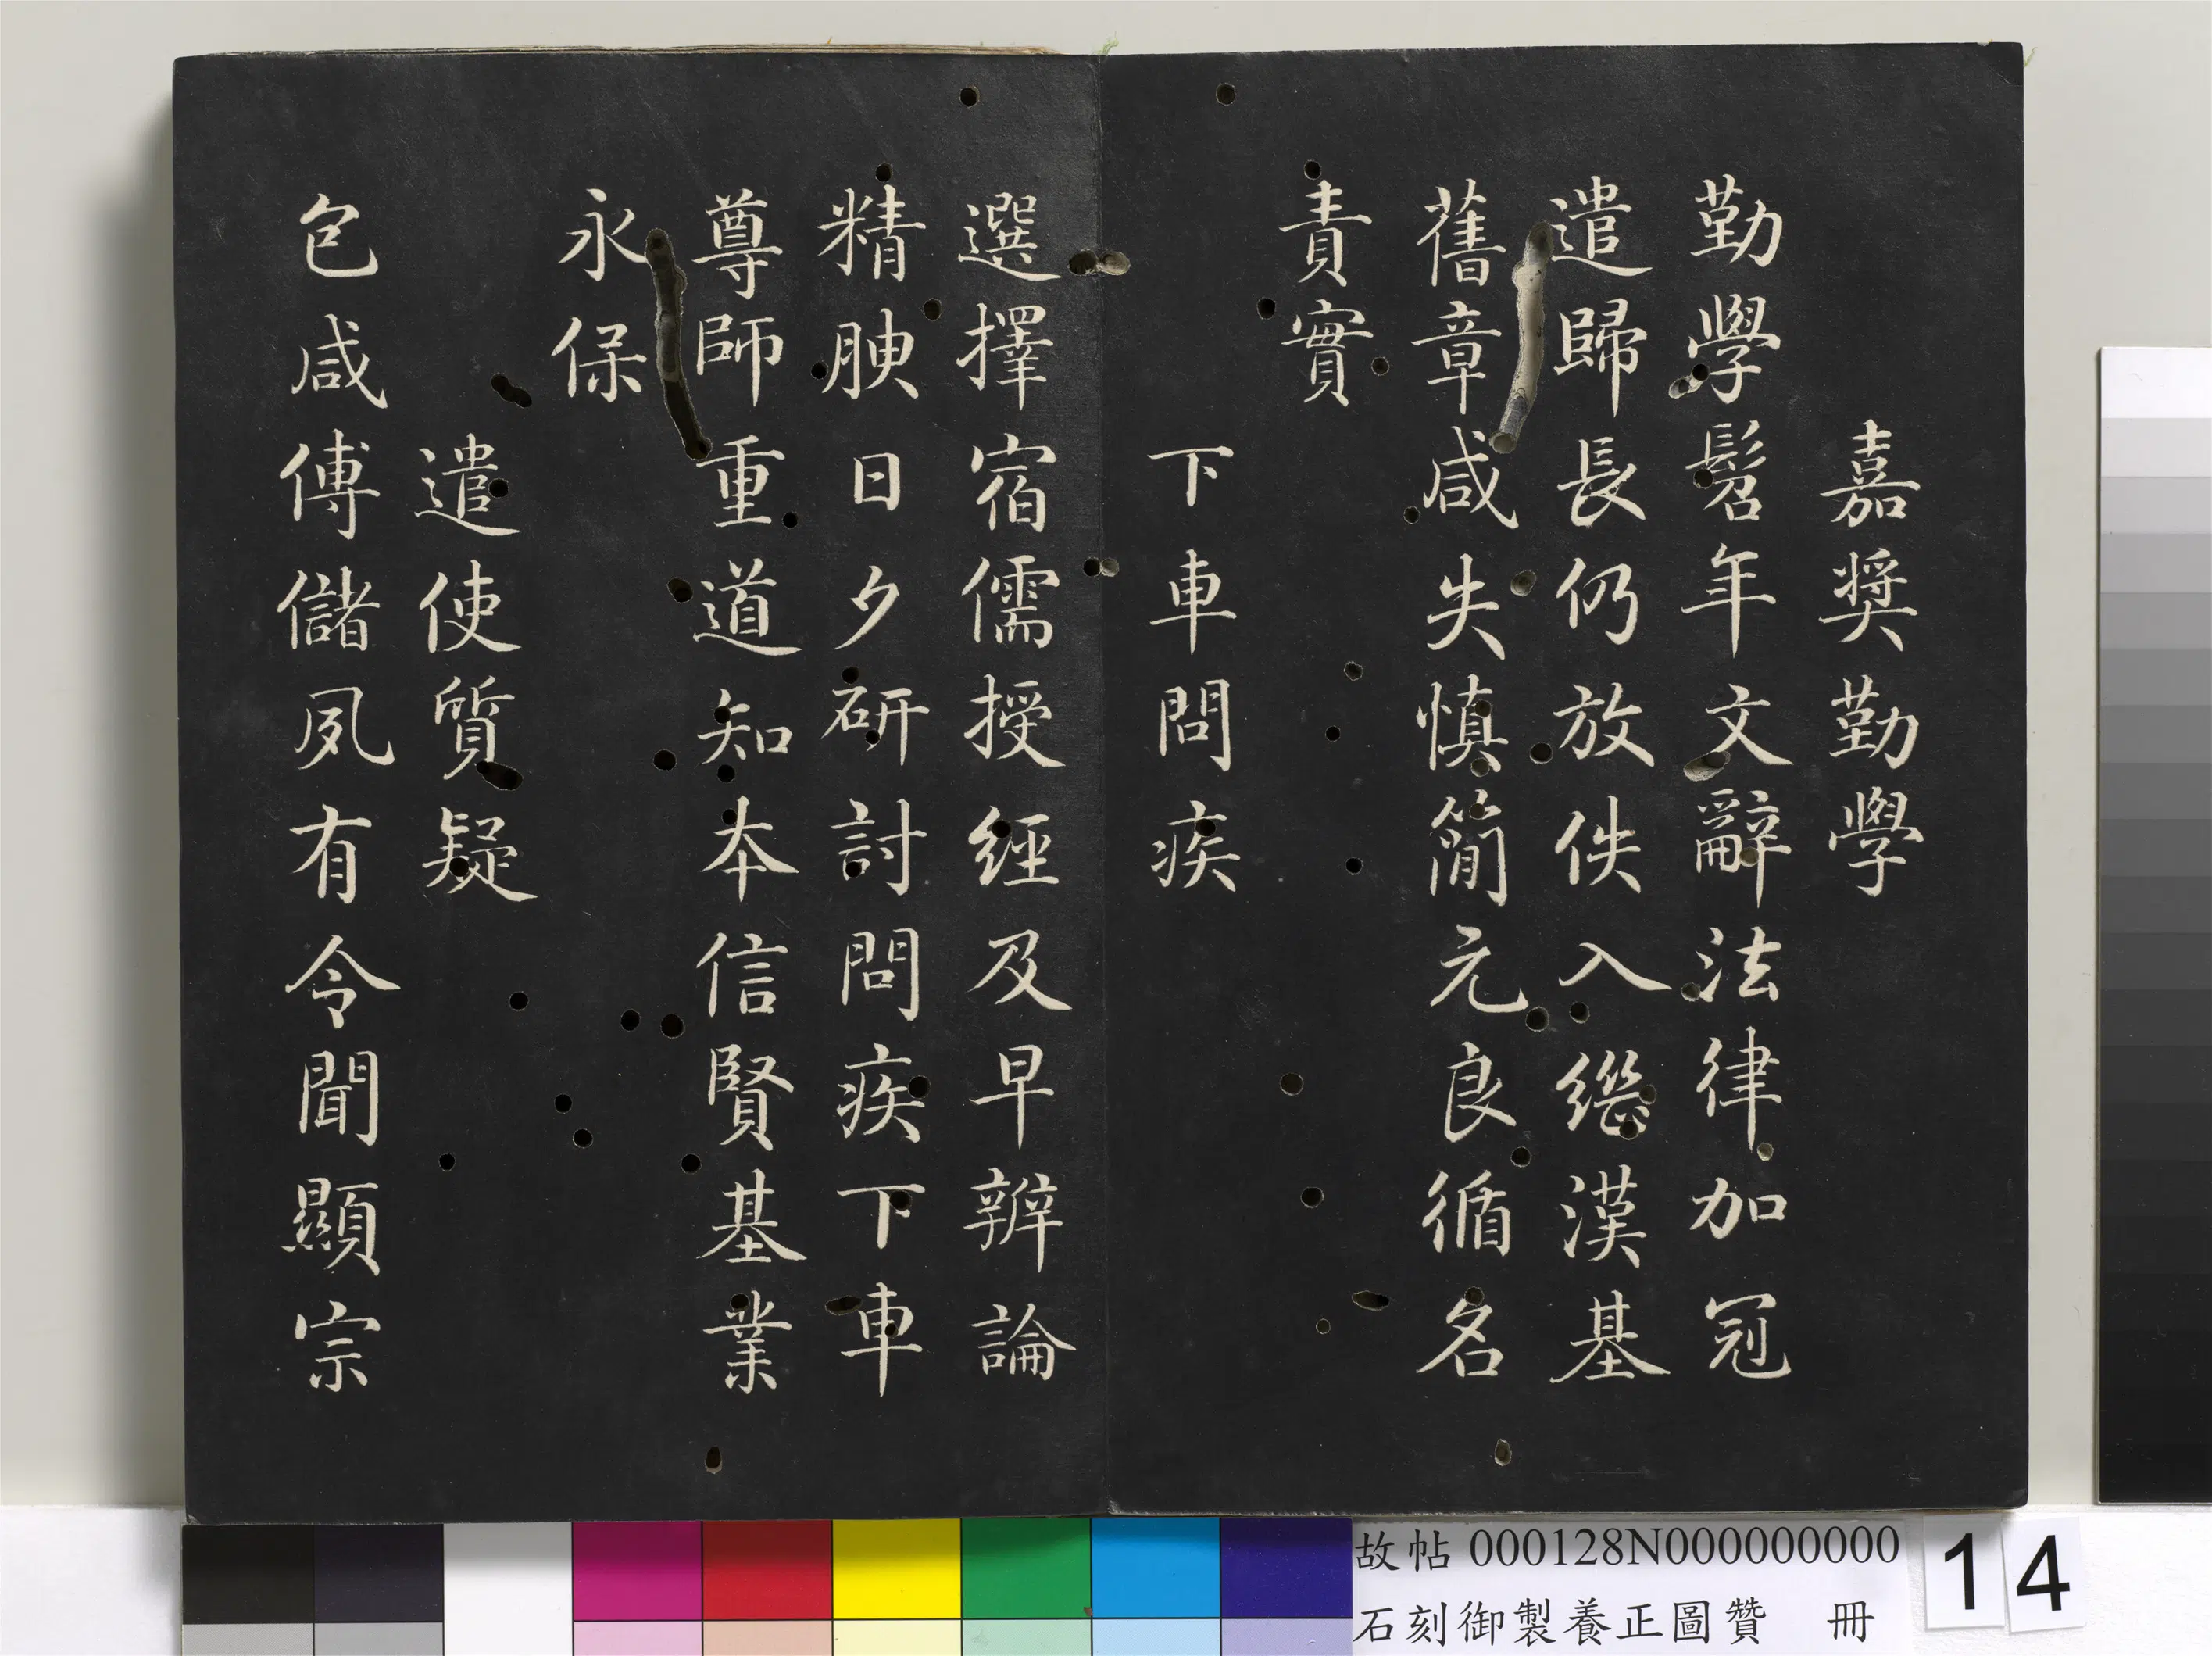 嘉奬勤學
勤學髫年文辭法律加冠
遣歸長仍放佚入繼漢基
舊章咸失慎簡元良循名
責實
下車問疾
選擇宿儒授經及早辨論
精腴日夕研討問疾下車
尊師重道知本信賢基業
永保
遣使質疑
包咸傅儲夙有令聞顯宗
故帖 000128N000000000
石刻御製養正圖贊 冊
14